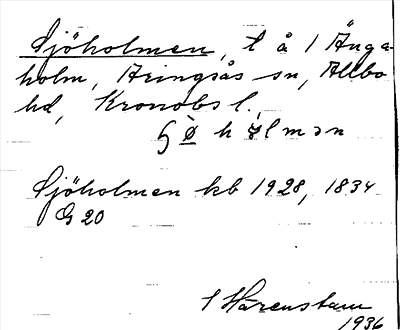 Sjöholmen, t å 1 Änga-
holm, Aringsås sn, Allbo
hd, Kronobs l.
Sjöholmen kb 1928, 1834
G 20
Harenstam
1936